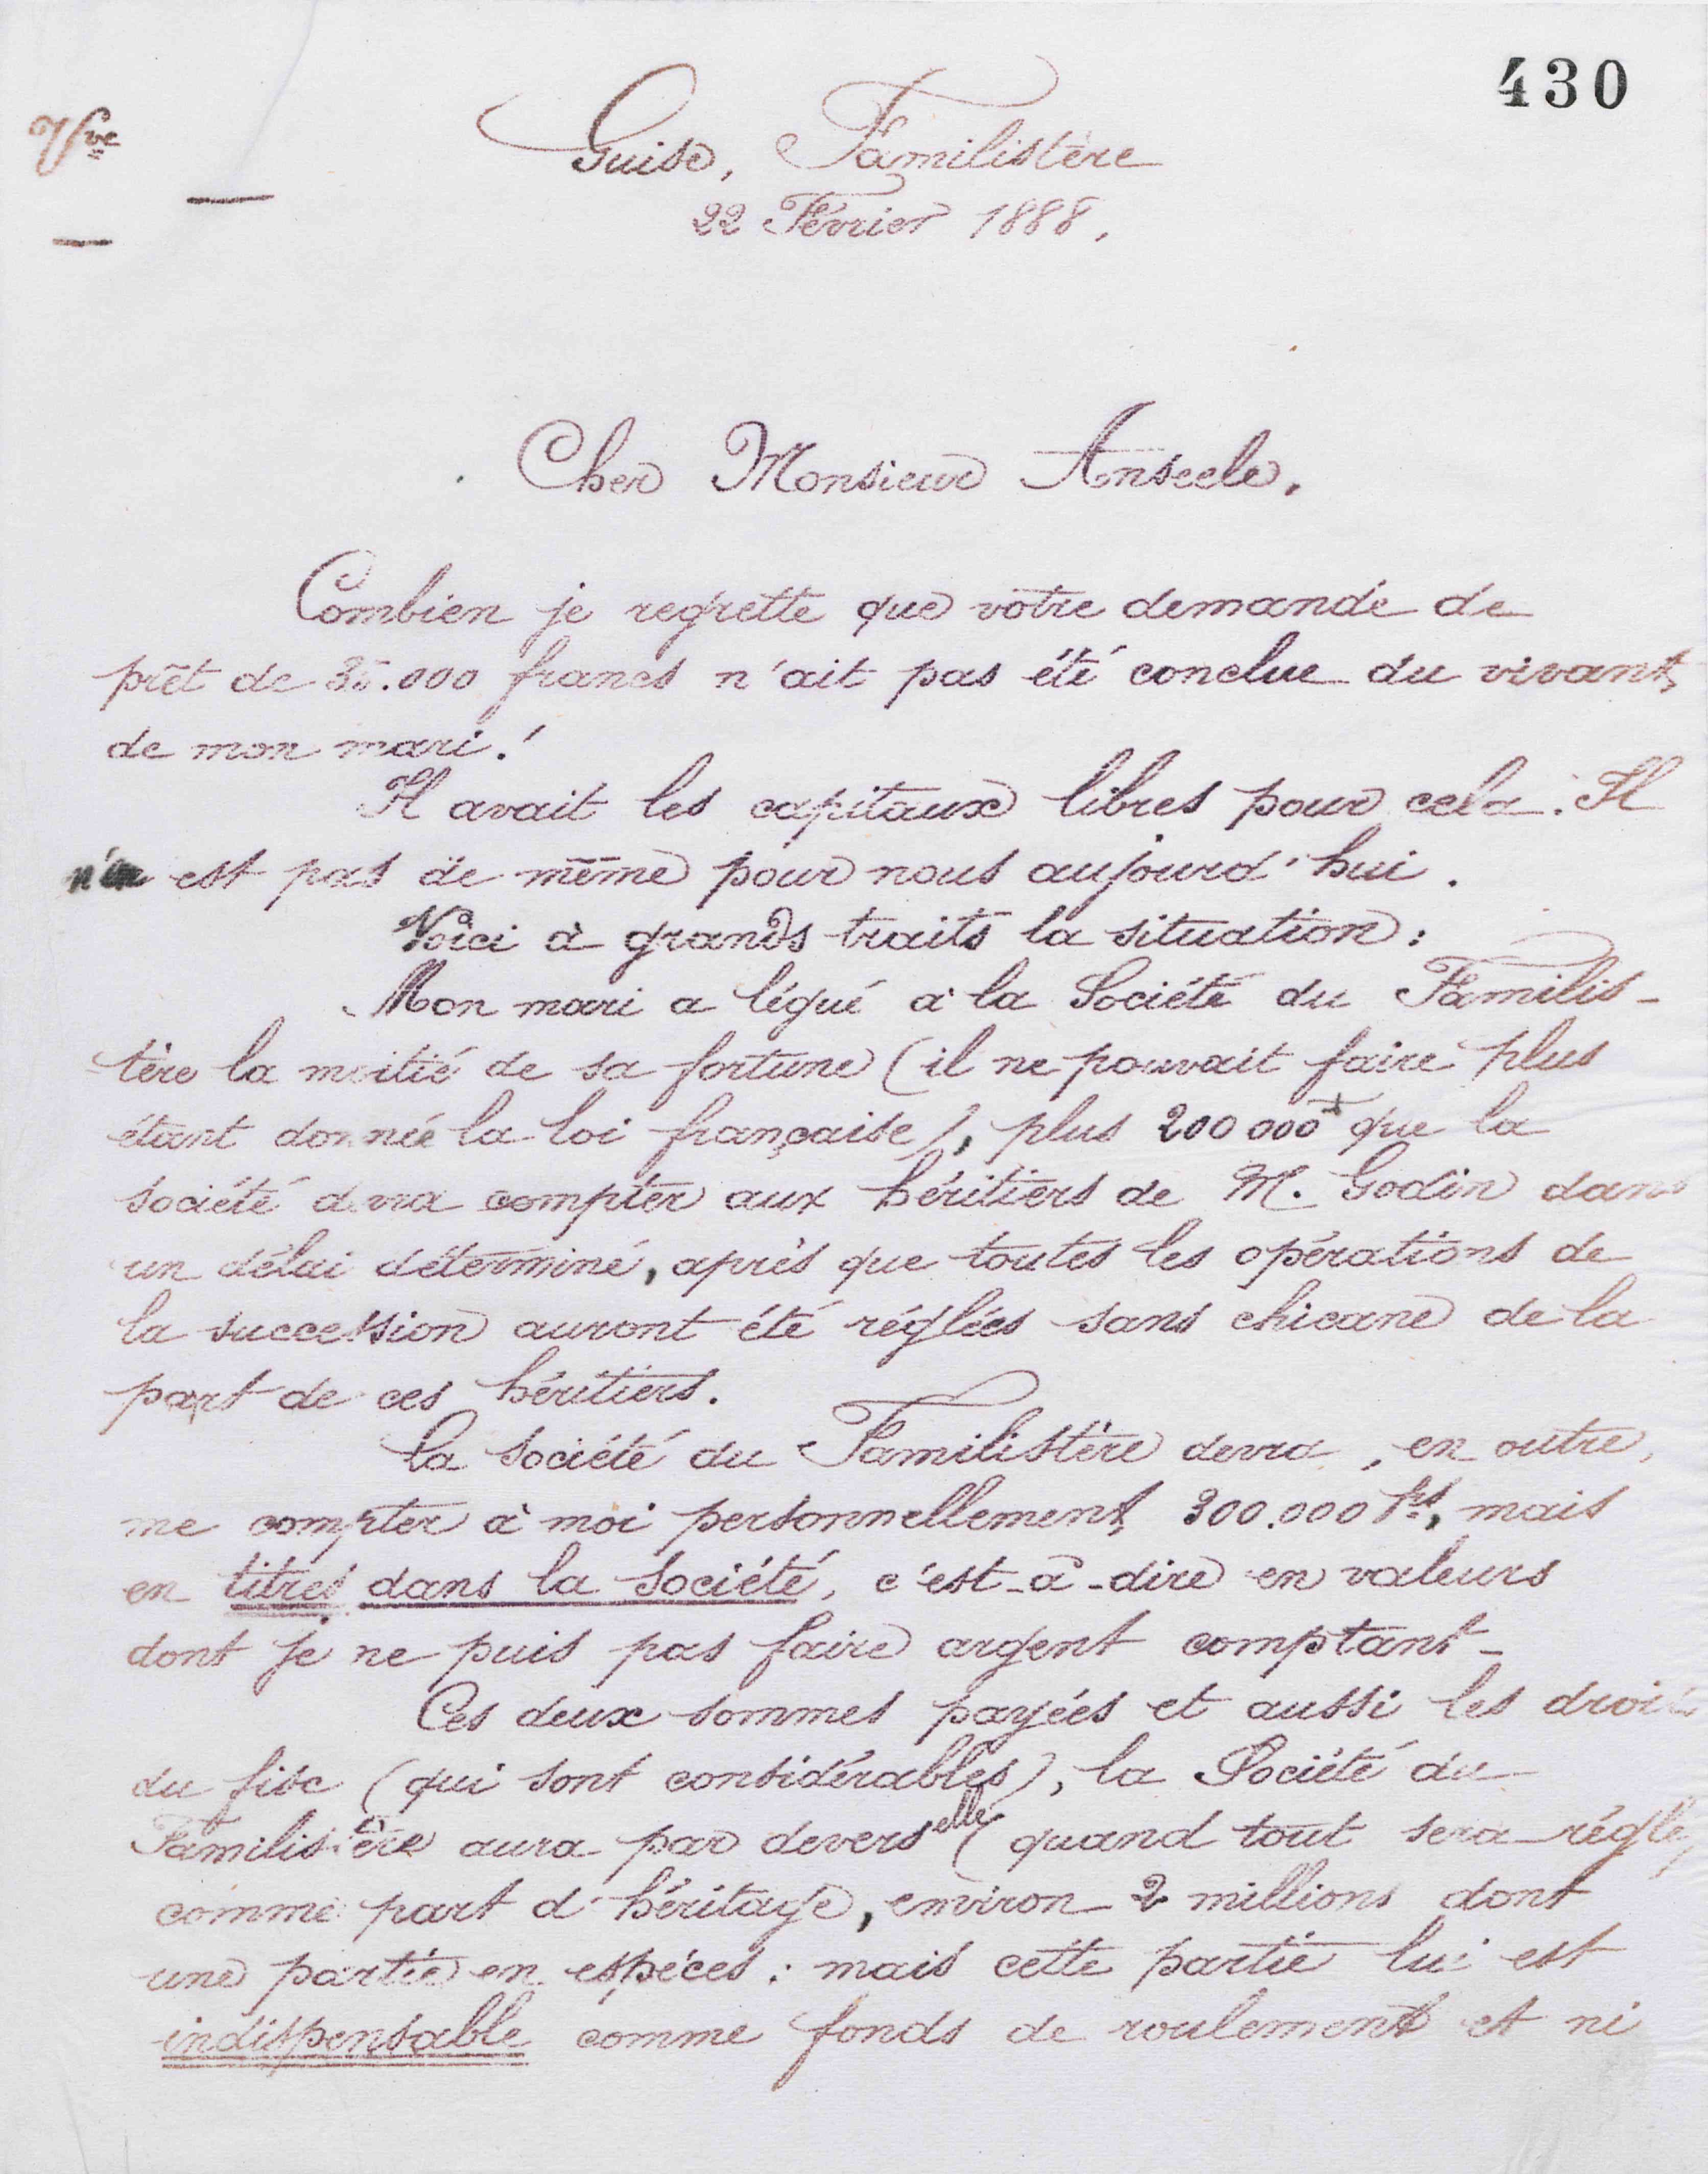 430
Vve
Guise, Familistère
22 Février 1888.
Cher Monsieur Anseele,
Combien je regrette que votre demande de
prêt de 35.000 francs n'ait pas été conclue du vivant
de mon mari !
Il avait les capitaux libres pour cela. Il
n'en est pas de même pour nous aujourd'hui.
Voici à grands traits la situation :
Mon mari a légué à la Société du Familis-
tère la moitié de sa fortune (il ne pouvait faire plus
étant donnée la loi française), plus 200 000 f que la
société devra compter aux héritiers de M. Godin dans
un délai déterminé, après que toutes les opérations de
la succession auront été réglées sans chicane de la
part de ces héritiers.
La Société du Familistère devra, en outre,
me compter à moi personnellement 300.000 frs, mais
en titres dans la Société, c'est-à-dire en valeurs
dont je ne puis pas faire argent comptant -
Ces deux sommes payées et aussi les droits
du fisc (qui sont considérables), la Société du
Familistère aura par devers elle (quand tout sera réglé)
comme part d'héritage, environ 2 millions dont
une partie en espèces : mais cette partie lui est
indispensable comme fonds de roulement et ni